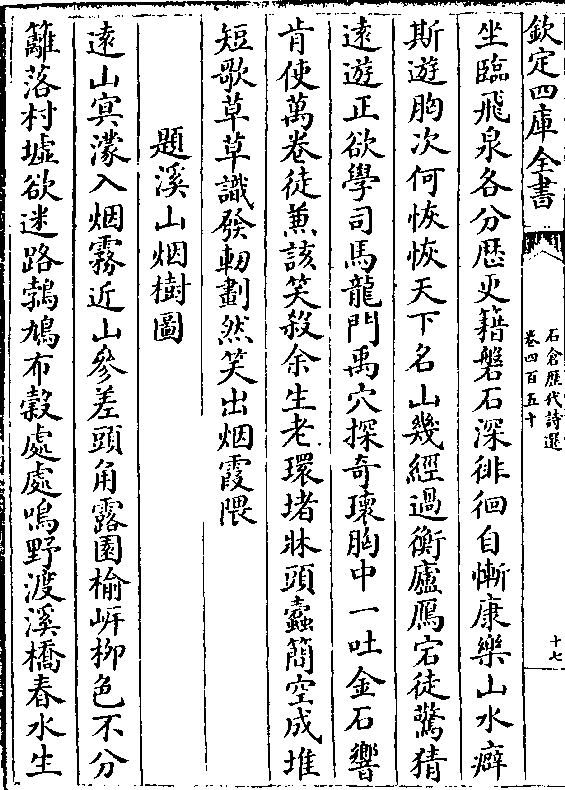 欽定四庫全書
石倉歷代詩選
卷四百五十
十七
坐臨飛泉各分歴更籍磐石深徘徊自慚康樂山水癖
斯遊胸次何恢恢天下名山幾經過衡廬鴈宕徒驚猜
遠遊正欲學司馬龍門禹穴探奇瓌胸中一吐金石響
肯使萬卷徒蒹該笑殺余生老環堵牀頭蠹簡空成堆
短歌草草識發軔劃然笑出烟霞隈
題溪山烟樹圖
遠山㝠濛入烟霧近山參差頭角露園榆㟁栁色不分
籬落村墟欲迷路鵓鳩布穀處處鳴野渡溪橋春水生